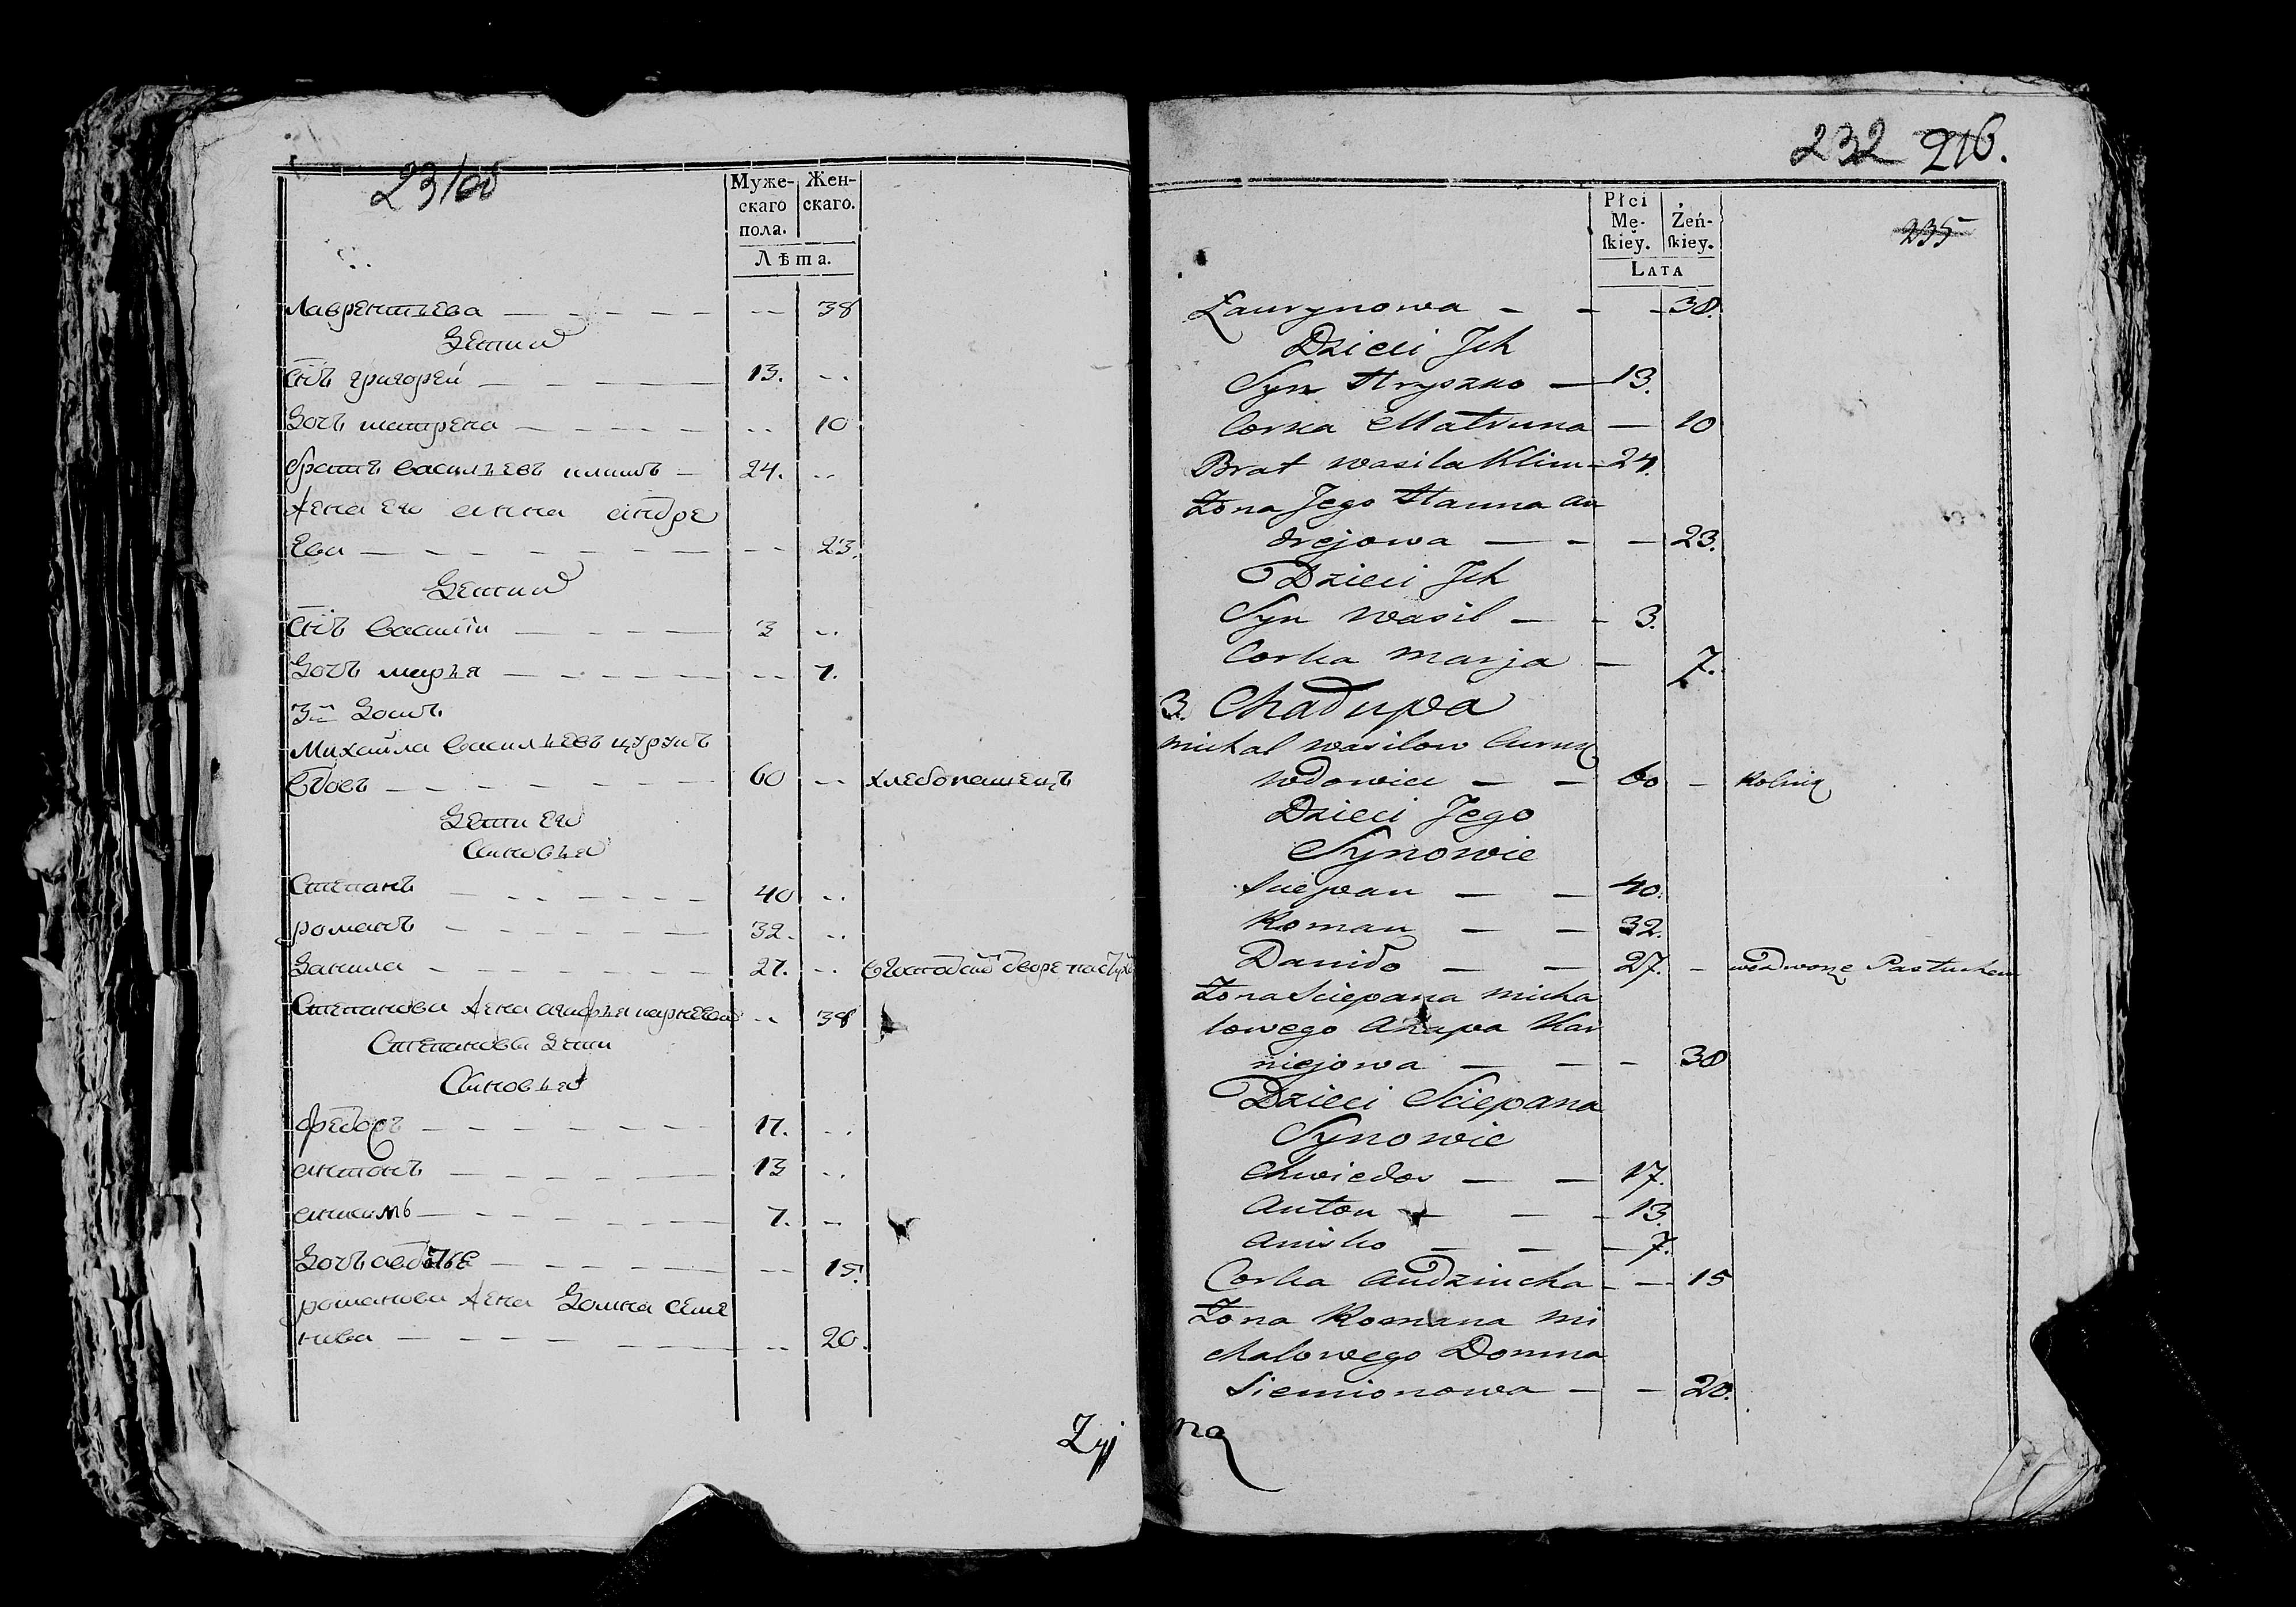 23/об
Муже- Жен-
скаго скаго.
пола.
Лѣта.
Лаврентьева — 38
Дети
Сынъ григорей — 13.
Дочь матрена — 10
братъ васильевъ климъ — 24.
Жена Его анна андре
Ева — 23.
Дети
Сынъ василии — 3
Дочь марья — 7.
3й Домъ
Михайла васильевъ цурунъ
вдовъ — 60 -- хлебопашецъ
Дети Его
Сыновья
Степанъ — 40
романъ — 32.
Данила — 27.
Степанова Жена агафья карнеева 38
Степановы Дети
Сыновья
федоръ — 17.
антонъ — 13
анисимъ — 7.
Дочь авдотье — 15.
романова Жена Домна семе
нова — 20.
Żyj
232 216.
Płci
Mę- Żeń-
skiey. skiey.
Lata
235
Ławrynowa — 38.
Dzieci Jch
Syn Hryszko — 13.
Corka Matruna — 10
Brat wasila Klim — 24.
Żona Jego Hanna an
drejowa — 23.
Dzieci Jch
Syn wasil — 3.
Corka marja — 7.
3. Chałupa
michał wasilow Curun
wdowiec — 60 — Rolnik
Dzieci Jego
Synowie
Sciepan — 40.
Roman — 32.
Daniło — 27. — we dworze Pastuchem
Żona Sciepana micha
łowego Ahapa Kar
niejowa — 38
Dzieci Sciepana
Synowie
Chwiedor — 17.
Anton — 13.
Anisko — 7.
Corka Audziucha — 15
Żona Romana mi
chałowego Domna
Siemionowa — 20.
ną